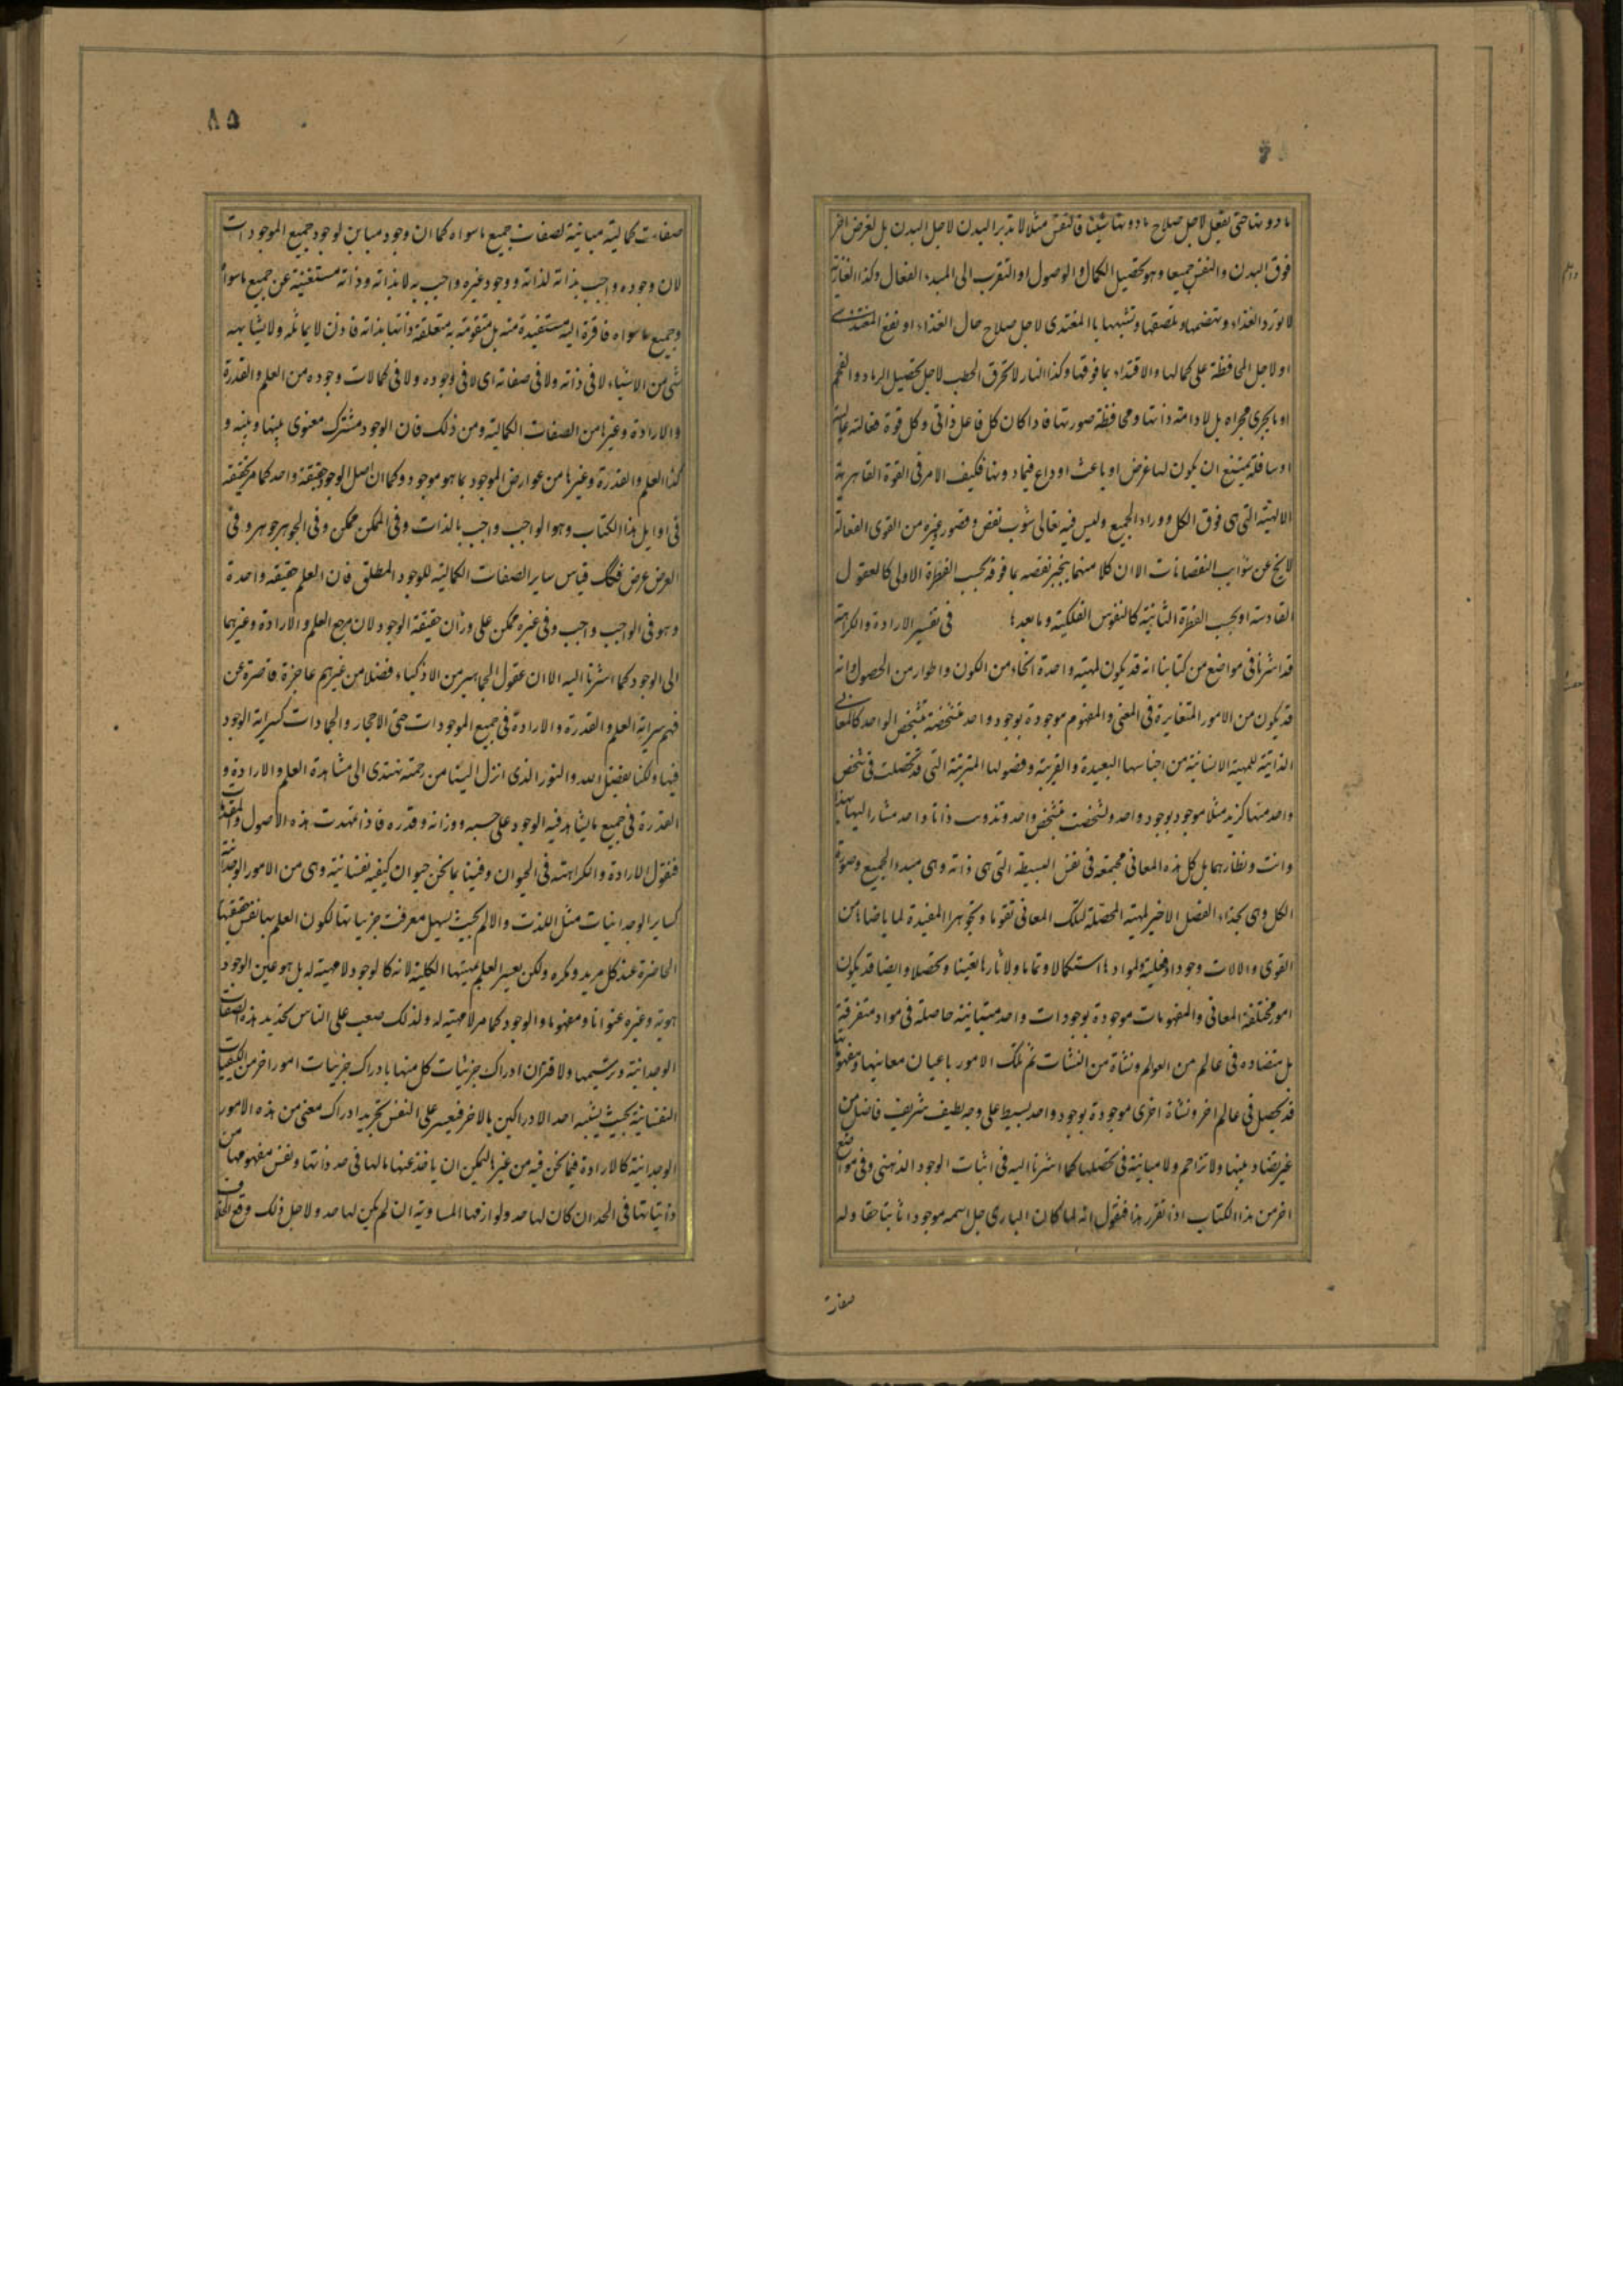 ما دونها حتى يفعل لاجل صلاح ما دونها شيئا فالنفس مثلا لا تدبر البدن لاجل البدن بل لغرض اخر
فوق البدن والنفس جميعا وهو تحصيل الكمال والوصول او التقرب الى المبدء الفعال وكذا الغاذية
لا تورد الغذاء وتهضمها وتلصقها وتشبهها بالمغتذى لاجل صلاح حال الغذاء او نفع المغتذى
او لاجل المحافظة على كمالها والاقتداء بما فوقها وكذا النار لا تحرق الحطب لاجل تحصيل الرماد والفحم
او ما يجرى مجراه بل لادامة ذاتها ومحافظة صورتها فاذا كان كل فاعل ذاتى وكل قوة فعالة عالية
او سافلة يمتنع ان يكون لها غرض او باعث او داع فيما دونها فكيف الامر فى القوة القاهرية
الالهية التى هى فوق الكل ووراء الجميع وليس فيه تعالى شوب نقص وقصور وغيره من القوى الفعالة
لا يخ عن شوايب النقصانات الا ان كلا منهما ينجبر نقصه بما فوقه بحسب الفطرة الاولى كالعقول
القادسة او بحسب الفطرة الثانية كالنفوس الفلكية وما بعدها فى تفسير الارادة والكراهة
قد اشرنا فى مواضع من كتابنا انه قد يكون لمهية واحدة انحاء من الكون واطوار من الحصول وانه
قد يكون من الامور المتغايرة فى المعنى والمفهوم موجودة بوجود واحد متشخصة بتشخص الواحد كالمعانى
الذاتية للمهية الانسانية من اجناسها البعيدة والقريبة وفصولها المترتبة التى قد تحصلت فى شخص
واحد منها كزيد مثلا موجود بوجود واحد وتشخصت بتشخص واحد وتذوتت ذاتا واحد مشارا اليها بهذا
وانت ونظايرهما بل كل هذه المعانى مجتمعة فى نفس البسيطة التى هى ذاته وهى مبدء الجميع وصورة
الكل وهى بحذاء الفصل الاخير لمهية المحصلة لتلك المعانى تقوما وتجوهرا المفيدة لما يضاهيها من
القوى والالات وجودا وفعلية ولموادها استكمالا وتماما ولاثارها تعينا وتحصلا وايضا قد يكون
امور مختلفة المعانى والمفهومات موجودة بوجودات واحد متباينة حاصلة فى مواد متفرقة
بل متضاده فى عالم من العوالم ونشاة من النشات ثم تلك الامور باعيان معانيها ومفهوماتها
قد يحصل فى عالم اخر ونشاة اخرى موجودة بوجود واحد بسيط على وجه لطيف شريف فاضل من
غير تضاد بينها ولا تزاحم ولا مباينة فى تحصلها كما اشرنا اليه فى اثبات الوجود الذهنى وفى مواضع
اخر من هذا الكتاب اذا تقرر هذا فنقول انه لما كان البارى جل اسمه موجودا ثابتا حقا وله
صفات
٨٥
صفات كمالية مباينة لصفات جميع ما سواه كما ان وجود مباين لوجود جميع الموجودات
لان وجوده واجب بذاته لذاته ووجود غيره واجب به لا بذاته وذاته مستغنية عن جميع ما سواه
وجميع ما سواه فاقرة اليه مستفيدة منه بل متقومة به متعلقة ذاتها بذاته فاذن لا يماثله ولا يشابهه
شى من الاشياء لا فى ذاته ولا فى صفاته اى لا فى وجوده ولا فى كمالات وجوده من العلم والقدرة
والارادة وغيرها من الصفات الكمالية ومن ذلك فان الوجود مشترك معنوى بينها وبينه و
كذا العلم والقدرة وغيرها من عوارض الموجود بما هو موجود وكما ان اصل الوجود حقيقة واحد كما مر تحقيقه
فى اوايل هذا الكتاب وهو الواجب واجب بالذات وفى الممكن ممكن وفى الجوهر جوهر وفى
العرض عرض فكذلك قياس ساير الصفات الكمالية للوجود المطلق فان العلم حقيقة واحدة
وهو فى الواجب واجب وفى غيره ممكن على وزان حقيقة الوجود لان مرجع العلم والارادة وغيرهما
الى الوجود كما اشرنا اليه الا ان عقول الجماهير من الاذكياء فضلا من غيرهم عاجزة قاصرة عن
فهم سراية العلم والقدرة والارادة فى جميع الموجودات حتى الاحجار والجمادات كسراية الوجود
فيها ولكنا بفضل الله والنور الذى انزل الينا من رحمته نهتدى الى مشاهدة العلم والارادة و
القدرة فى جميع ما يشاهد فيه الوجود على حسبه ووزانه وقدره فاذا تمهدت هذه الاصول والمقدمات
فنقول الارادة والكراهة فى الحيوان وفينا بما نحن حيوان كيفيه نفسانية وهى من الامور الوجدانية
كساير الوجدانيات مثل اللذت والالم بحيث يسهل معرفت جزئياتها لكون العلم بها نفس حقيقتها
الحاضرة عند كل مريد ومكره ولكن يعسر العلم بمهيتها الكلية لانه كالوجود لا مهية له بل هو عين الوجود
هوية وغيره عنوانا ومفهوما والوجود كما مر لا مهية له ولذلك صعب على الناس تحديد هذه الصفات
الوجدانية وترسيمها ولاقتران ادراك جزئيات كل منها بادراك جزئيات امور اخر من الكيفيات
النفسانية بحيث يشتبه احد الادراكين بالاخر فيعسر على النفس تجريد ادراك معنى من هذه الامور
الوجدانية كالارادة فيما نحن فيه من غيرها ليمكن ان ياخذ عنها مالها فى حد ذاتها ونفس مفهومها من
ذاتياتها فى الحد ان كان لها حد ولوازمها المساوية ان لم يكن لها حد ولاجل ذلك وقع الخلاف